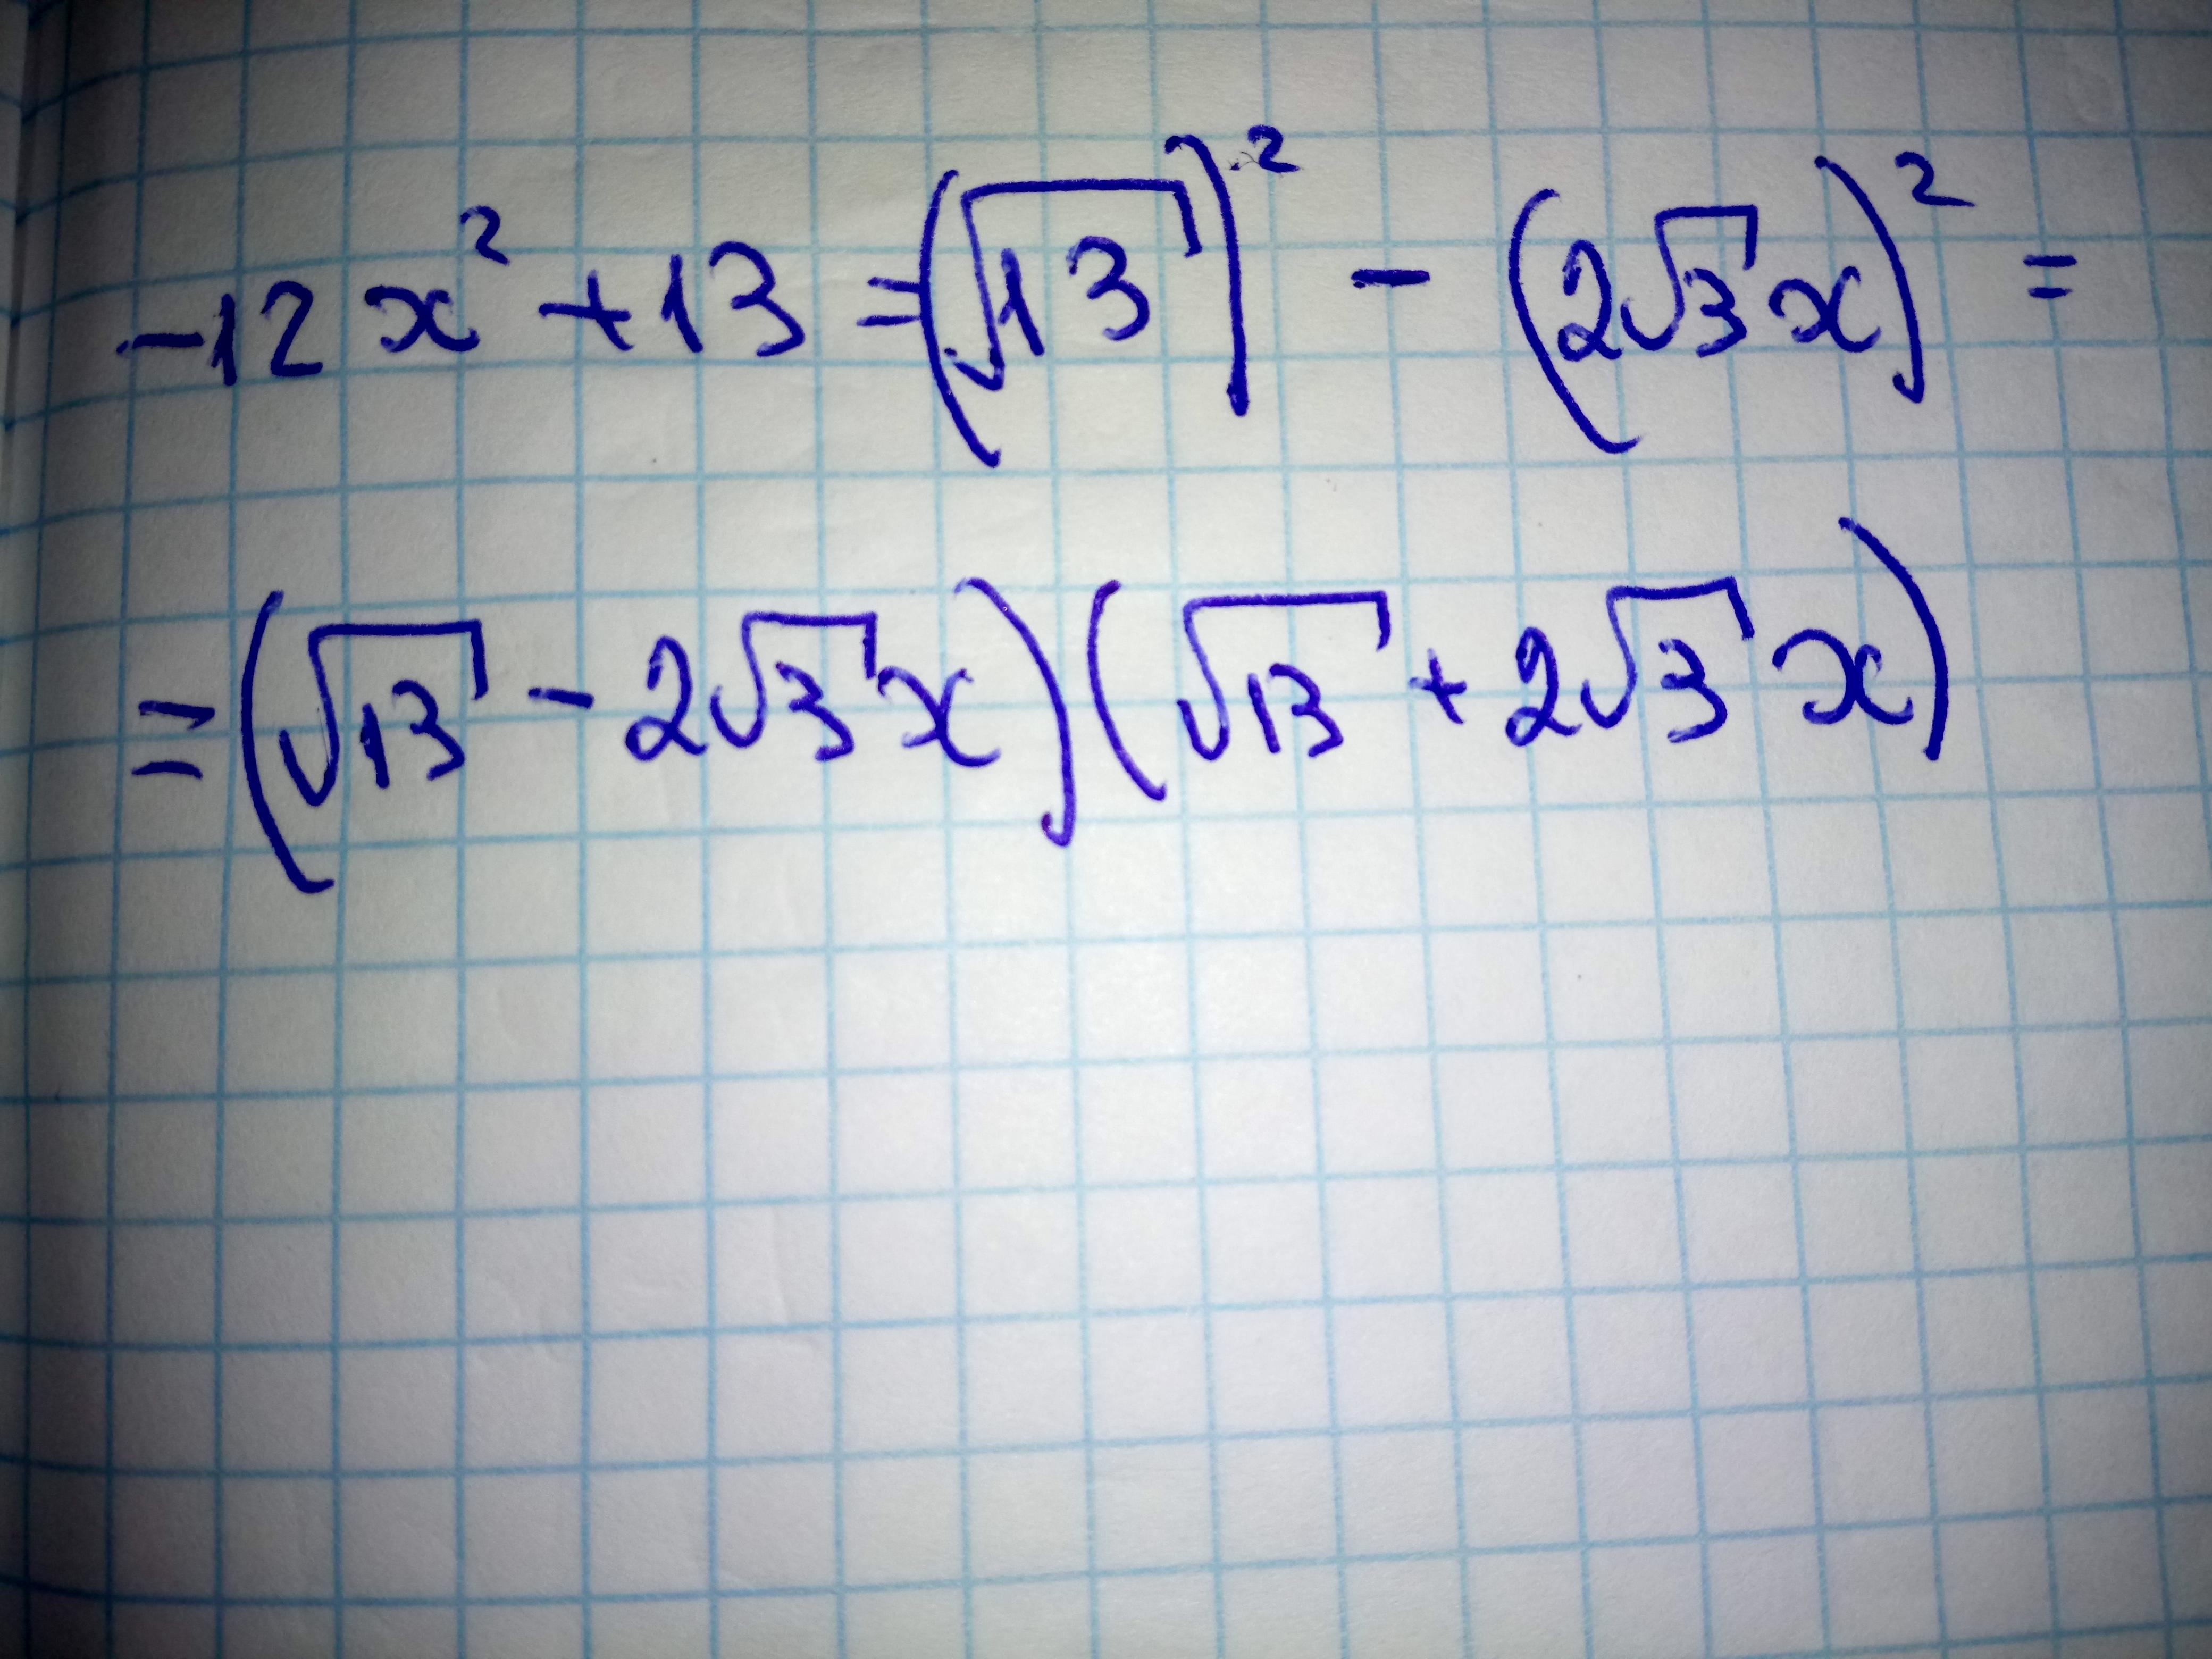 -12x² + 13 = (√13)² - (2√3x)² =
= (√13 - 2√3x)(√13 + 2√3x)